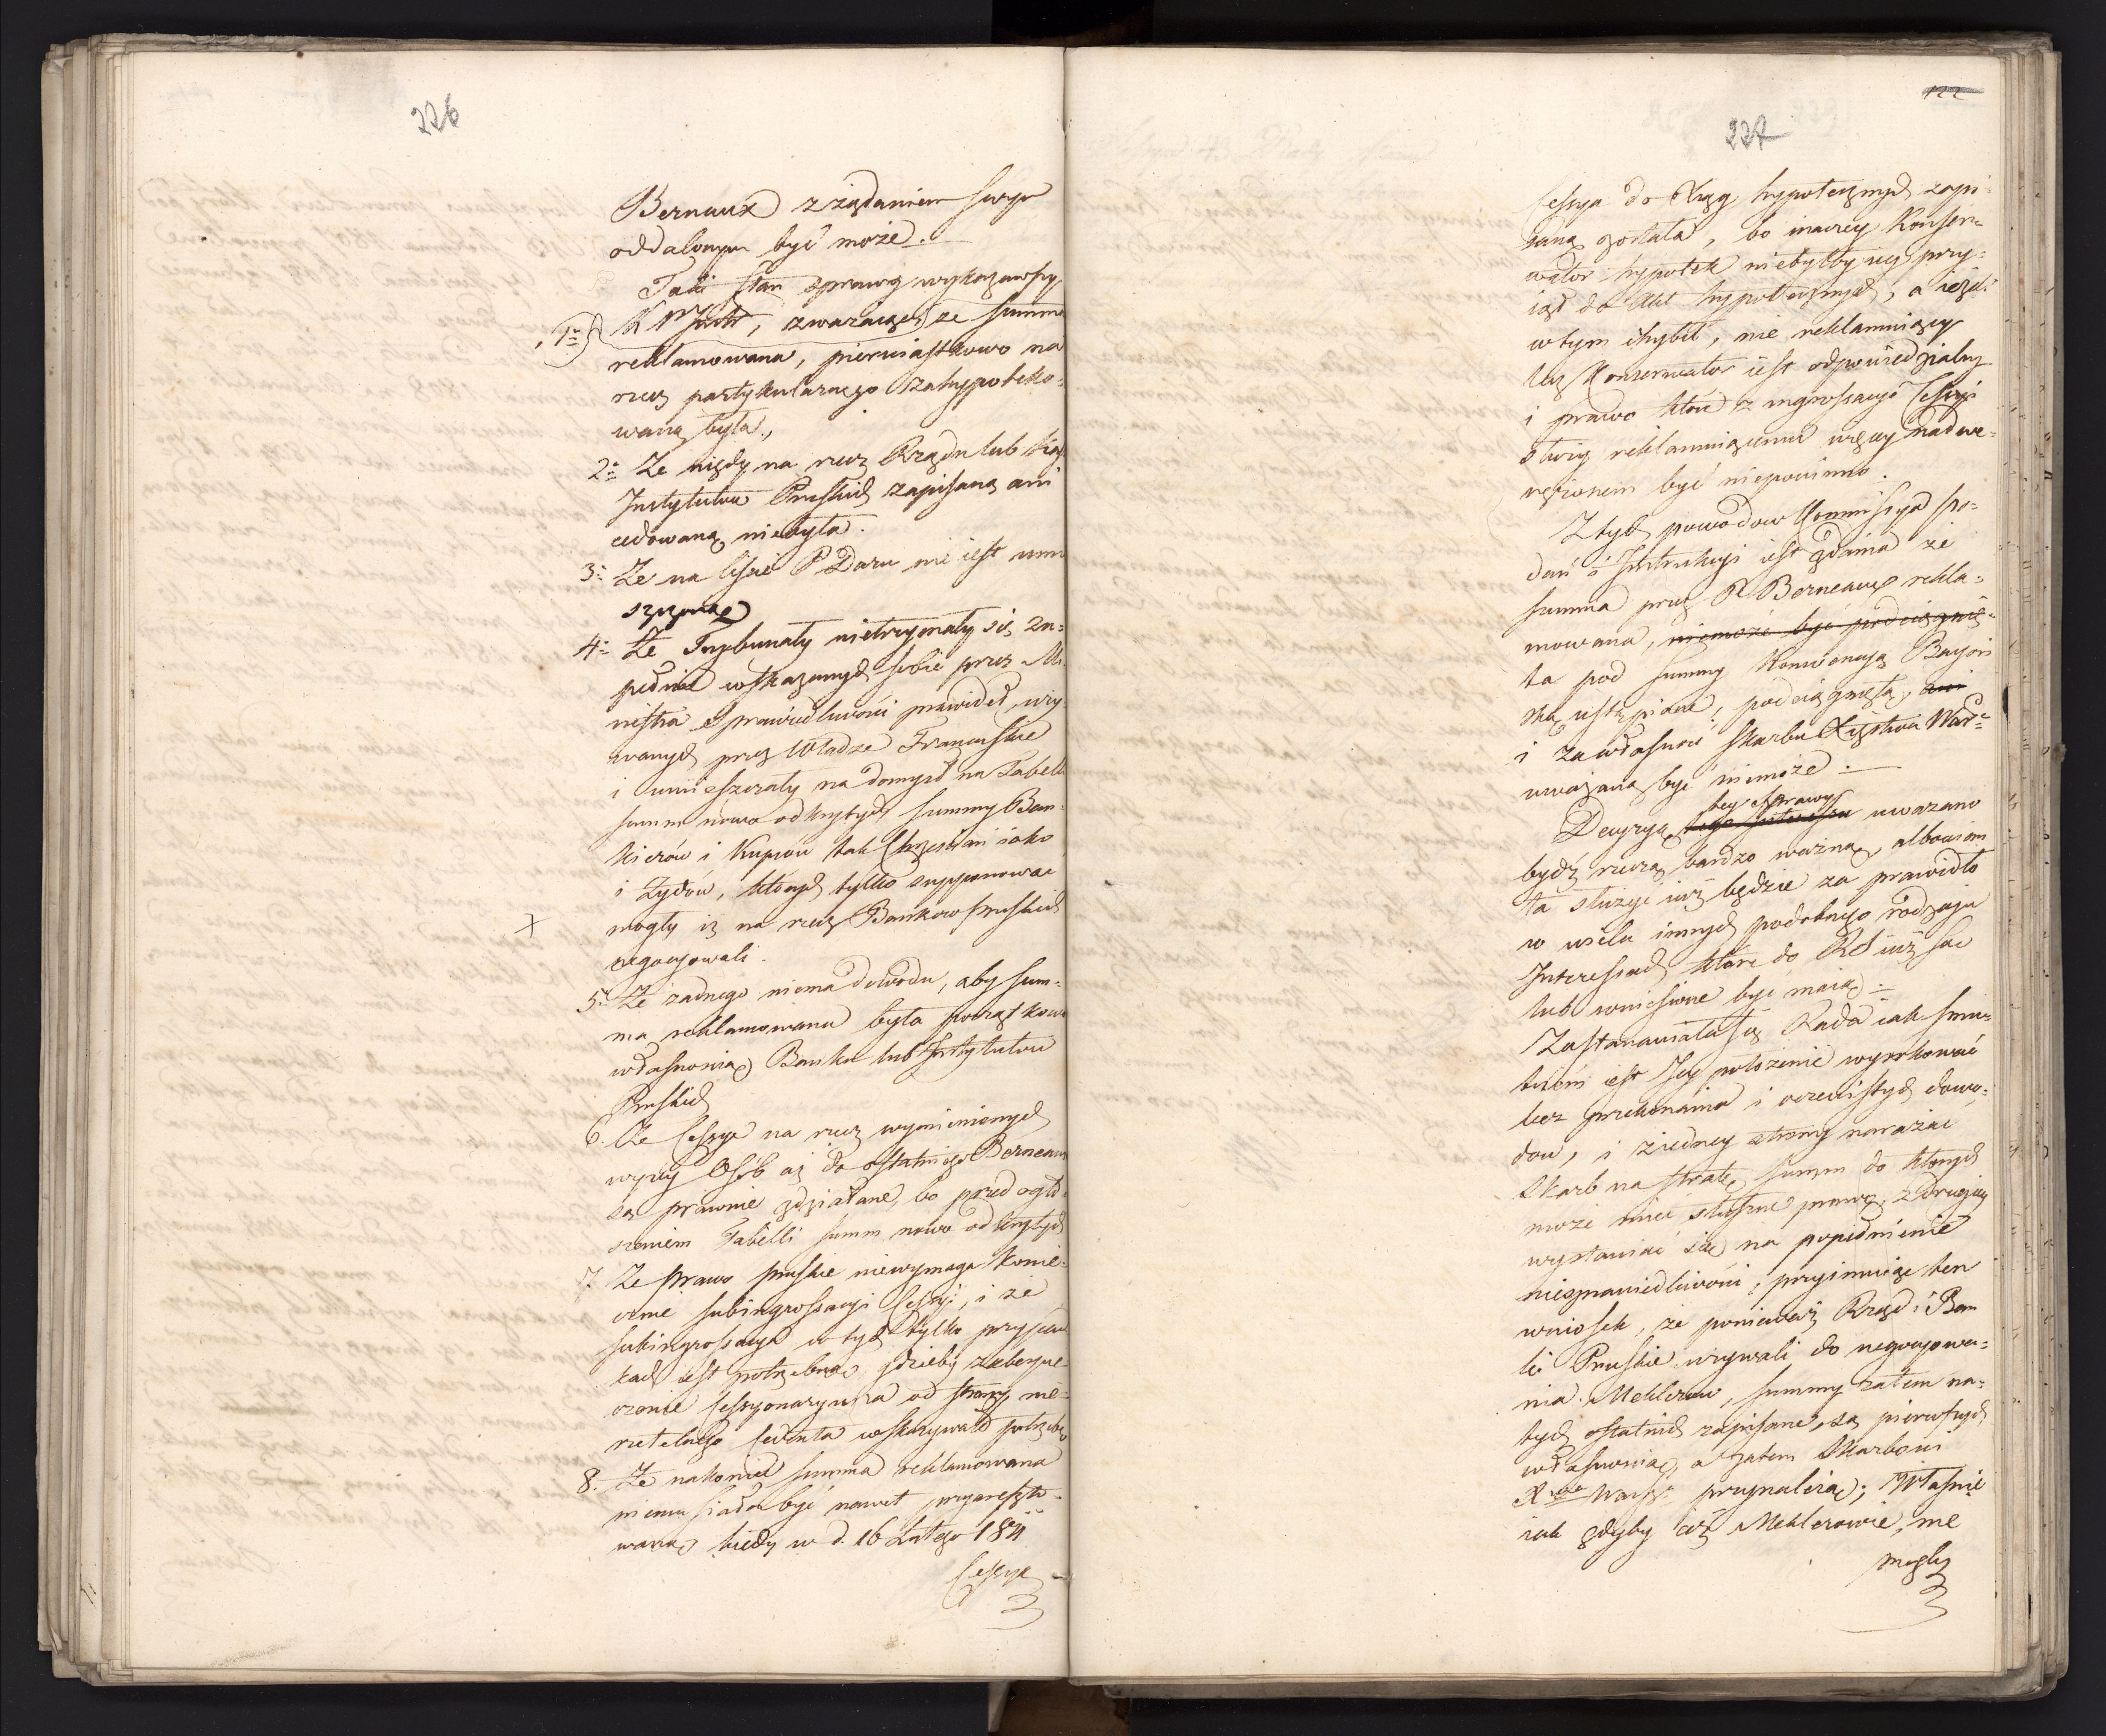 226
Bernaux z żądaniem swym
oddalonym być może.
Taki stan sprawy wykazawszy
1mo zważając, że summa
reklamowana, pierwiastkowo na
rzecz partykularnego zahypoteko-
waną była.
2o Że nigdy na rzecz Rządu lub
Instytutów Pruskich zapisaną ani
cedowaną niebyła.
3o Że na liście P Daru nie iest umie
szczona
4o Że Trybunały nietrzymały się zu-
pełnie wskazanych sobie przez Mi-
nistra Sprawiedliwości prawideł, wzy-
wanych przez Władze Francuskie
i umieszczały na domysł na Tabelli
summ nowo odkrytych summy Ban-
kierów i Kupców tak Chrześcian iako
i Żydów, których tylko supponować
mogły iż na rzecz Banków Pruskich
negocyowali.
5o Że żadnego niema dowodu, aby sum-
ma reklamowana była początkowo
własnością Banku lub Instytutów
Pruskich
6. Że Cessye na rzecz wymienionych
wyżey Osób aż do ostatniego Berneaux
są prawnie zdziałane, bo przed ogło-
szeniem Tabelli summ nowo odkrytych
7. Że prawo pruskie niewymaga konie-
cznie subingrossacyi Cessyi, i że
subingrossacya w tych tylko przypad
kach iest potrzebna gdzieby zabezpie-
czenie Cessyonaryusza od strony nie-
rzetelnego Cedenta wskazywało potrzebę
8. Że nakoniec summa reklamowana
niemusiała być nawet przyareszto-
waną kiedy w d. 16 Lutego 1811
Cessya
122
227
Cessya do Xiąg hypotecznych zapi-
saną została, bo inaczey Konser-
wator hypotek niebyłby iey przy-
iął do Akt hypotecznych, a ieżeli
wtym chybił, nie reklamuiący
lecz Konserwator iest odpowiedzialny
i prawo które z ingrossacyi Cessyi
służy reklamuiącemu w niczem nadwe-
rężonem być niepowinno.
Z tych powodów Kommissya po-
dań i Instrukcyi iest zdania że
summa przez P. Berneaux rekla-
mowana, niemoże być podciągnię-
ta pod summy Konwencyą Bayoń
ską ustąpione, podciągniętą, ani
i za własność skarbu Xięstwa Warsz.
uważaną być niemoże.
Decyzyą tey sprawy uważano
bydź rzeczą bardzo ważną, albowiem
ta służyć iuż będzie za prawidło
w wielu innych podobnego rodzaju
Interessach które do RS iuż są
lub wniesione być maią.
Zastanawiała się Rada iak smu-
tném iest Jey położenie wyrokować
bez przekonania i oczewistych dowo-
dów, i z iedney strony narażać
Skarb na stratę summ do których
może mieć słuszne prawo, z drugiey
wystawiać się na popełnienie
niesprawiedliwości; przyimuiąc ten
wniosek, że ponieważ Rząd i Ban
ki Pruskie używali do negocyowa-
nia Meklerów, summy zatem na
tych ostatnich zapisane, są pierwszych
własnością, a zatem Skarbowi
Xwa Warsz. przynależą; Właśnie
iak gdyby ciż Meklerowie, nie
mogli